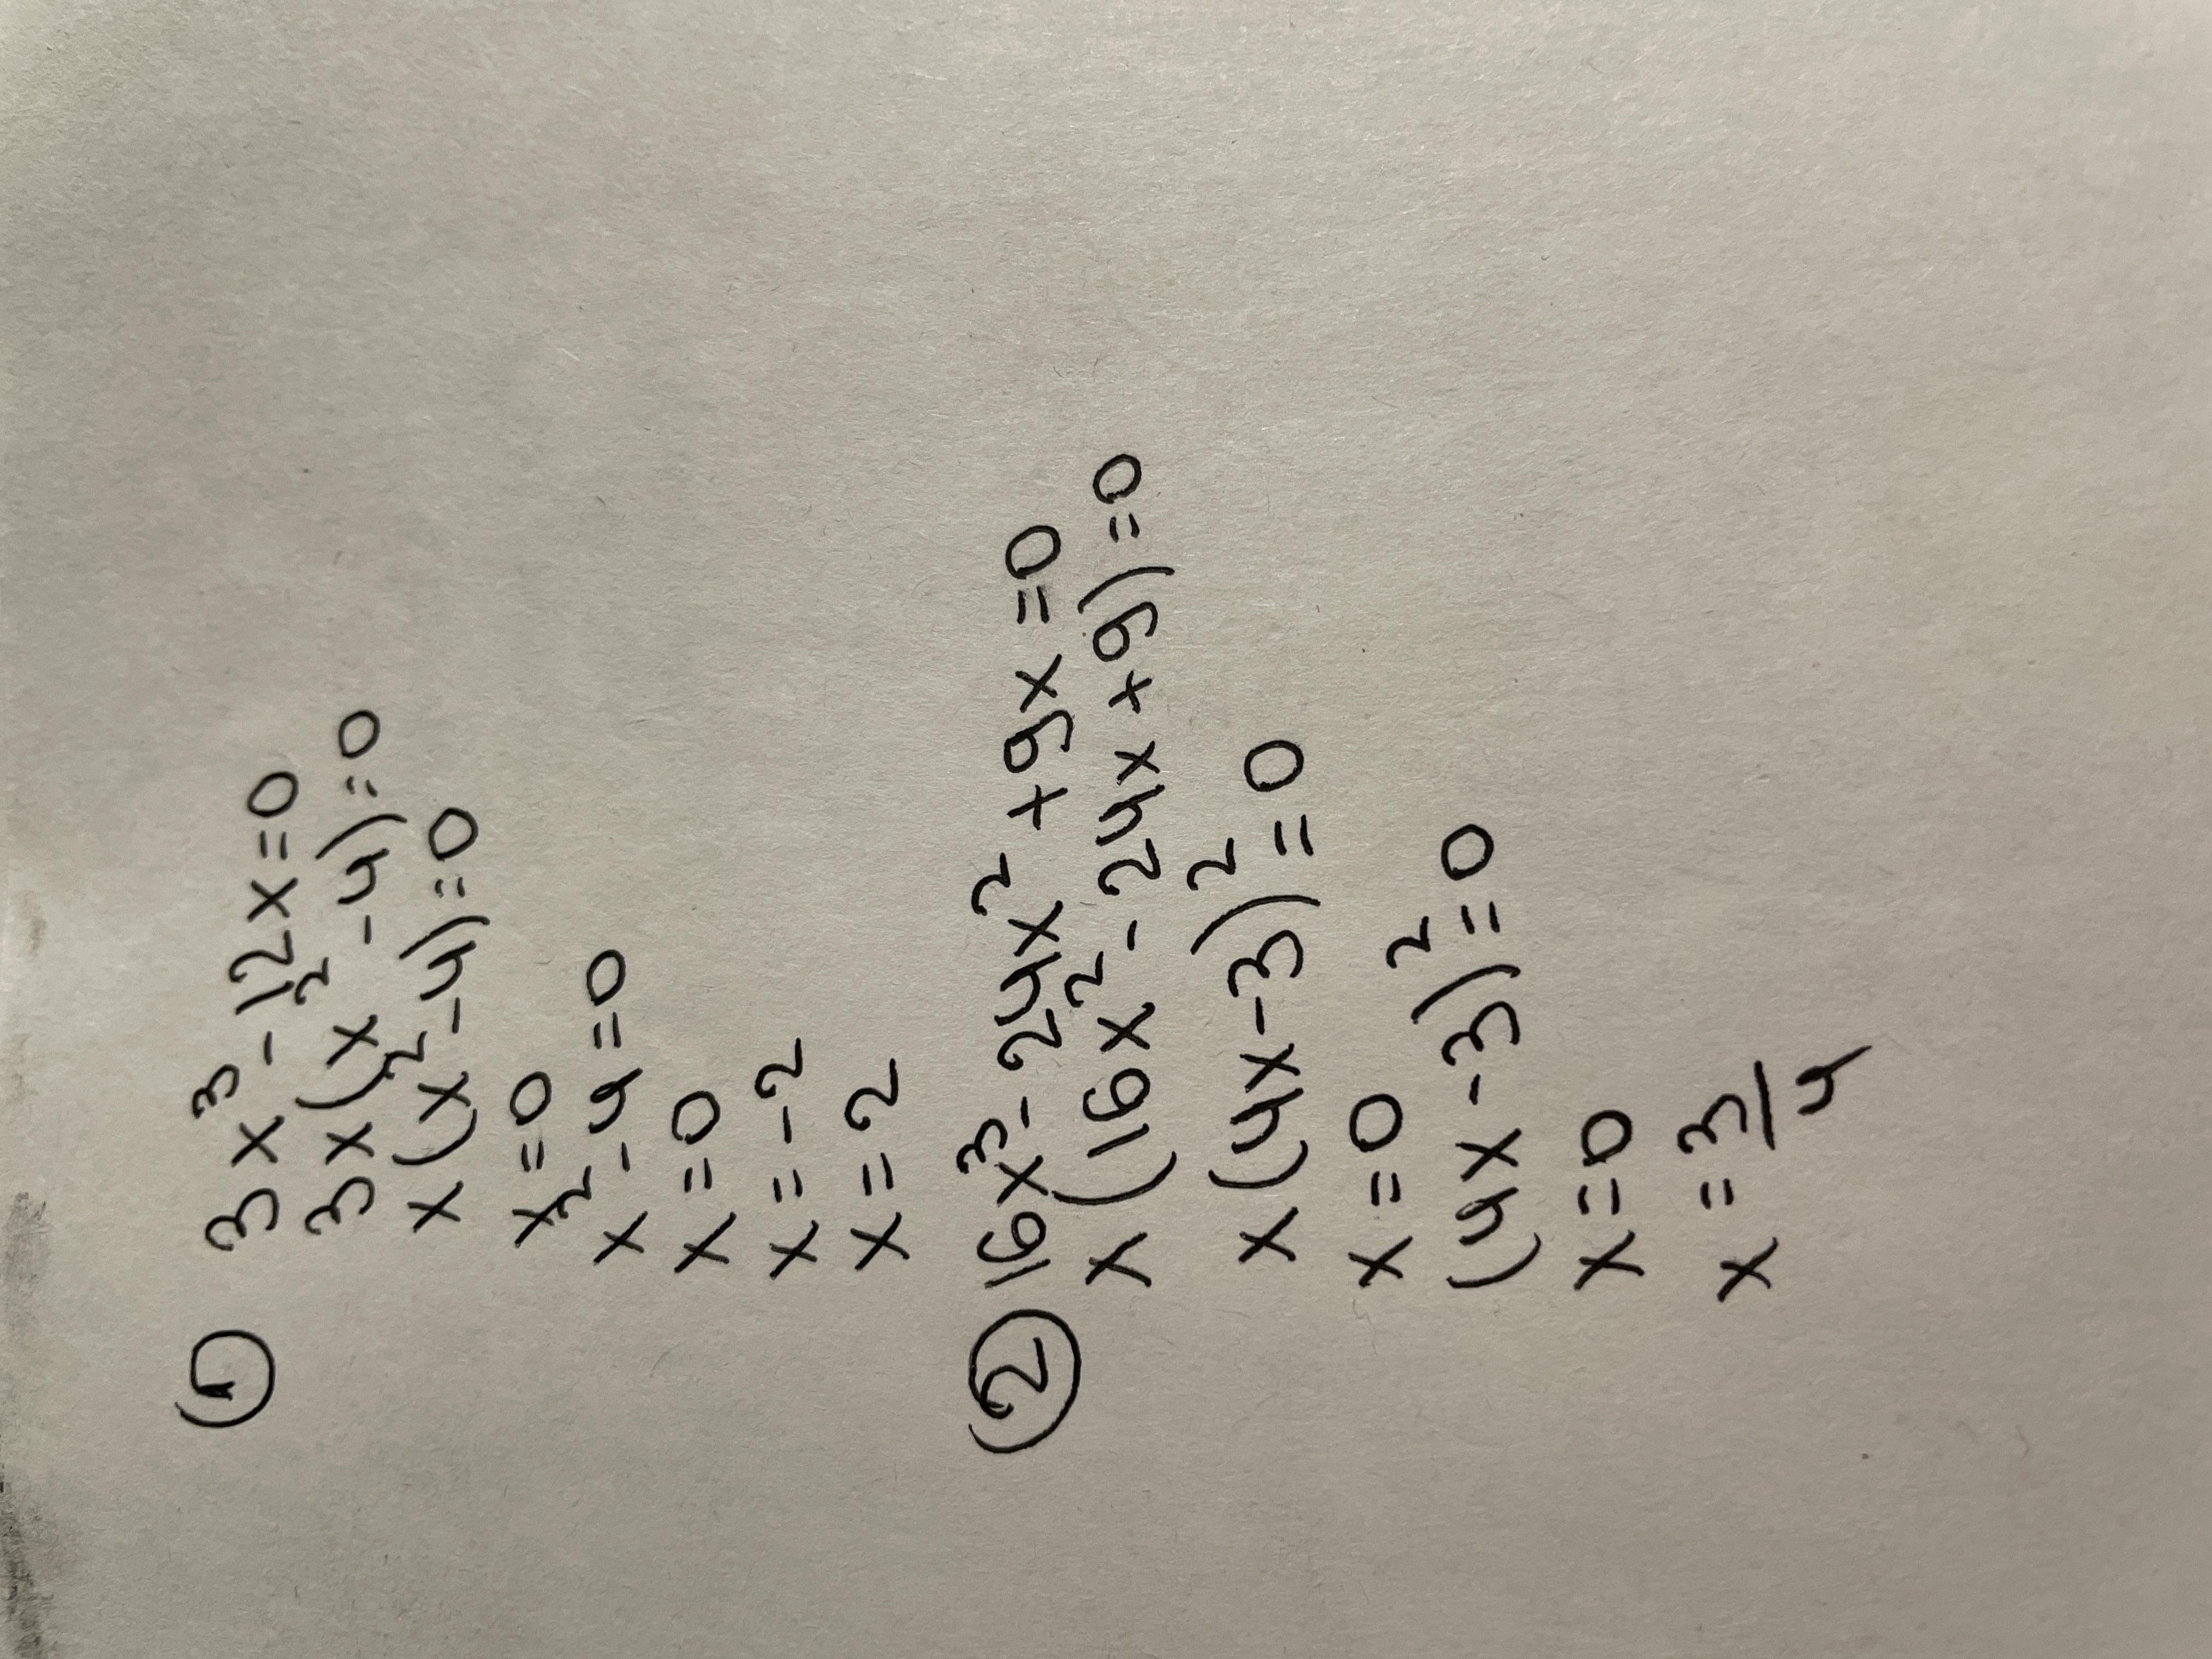 ① 3x³-12x=0
3x(x²-4)=0
x(x²-4)=0
x=0
x²-4=0
x=0
x=-2
x=2
② 16x³-24x²+9x=0
x(16x²-24x+9)=0
x(4x-3)²=0
x=0
(4x-3)²=0
x=0
x=3/4